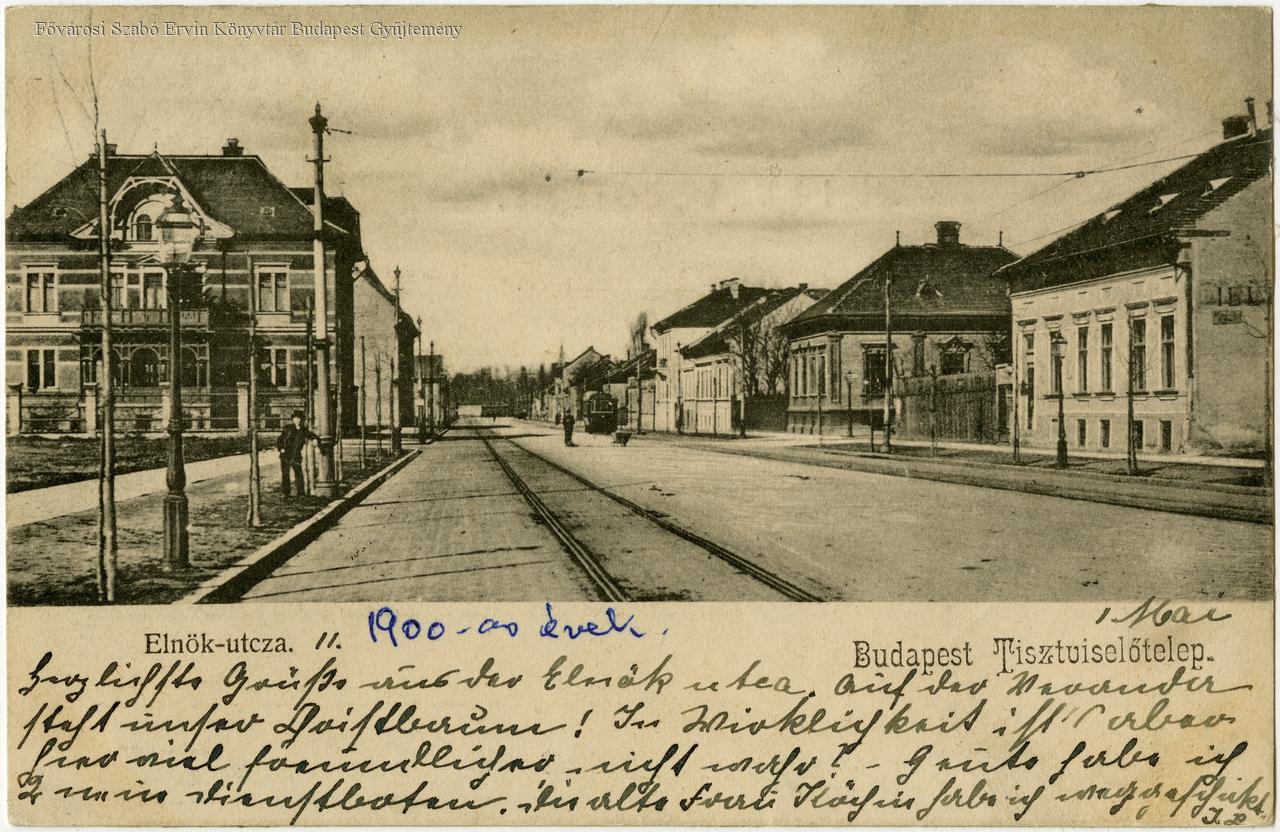 Fővárosi Szabó Ervin Könyvtár Budapest Gyűjtemény
Elnök-utcza. 11.
1900-as évek.
1 Mai
Budapest Tisztviselőtelep.
Herzlichste Grüße aus der Elnök utca. Auf der Veranda
steht unser Christbaum! In Wirklichkeit ist's aber
hier viel freundlicher nicht wahr? - Heute habe ich
2 neue Dienstboten, die alte Frau Köchin habe ich weggeschickt.